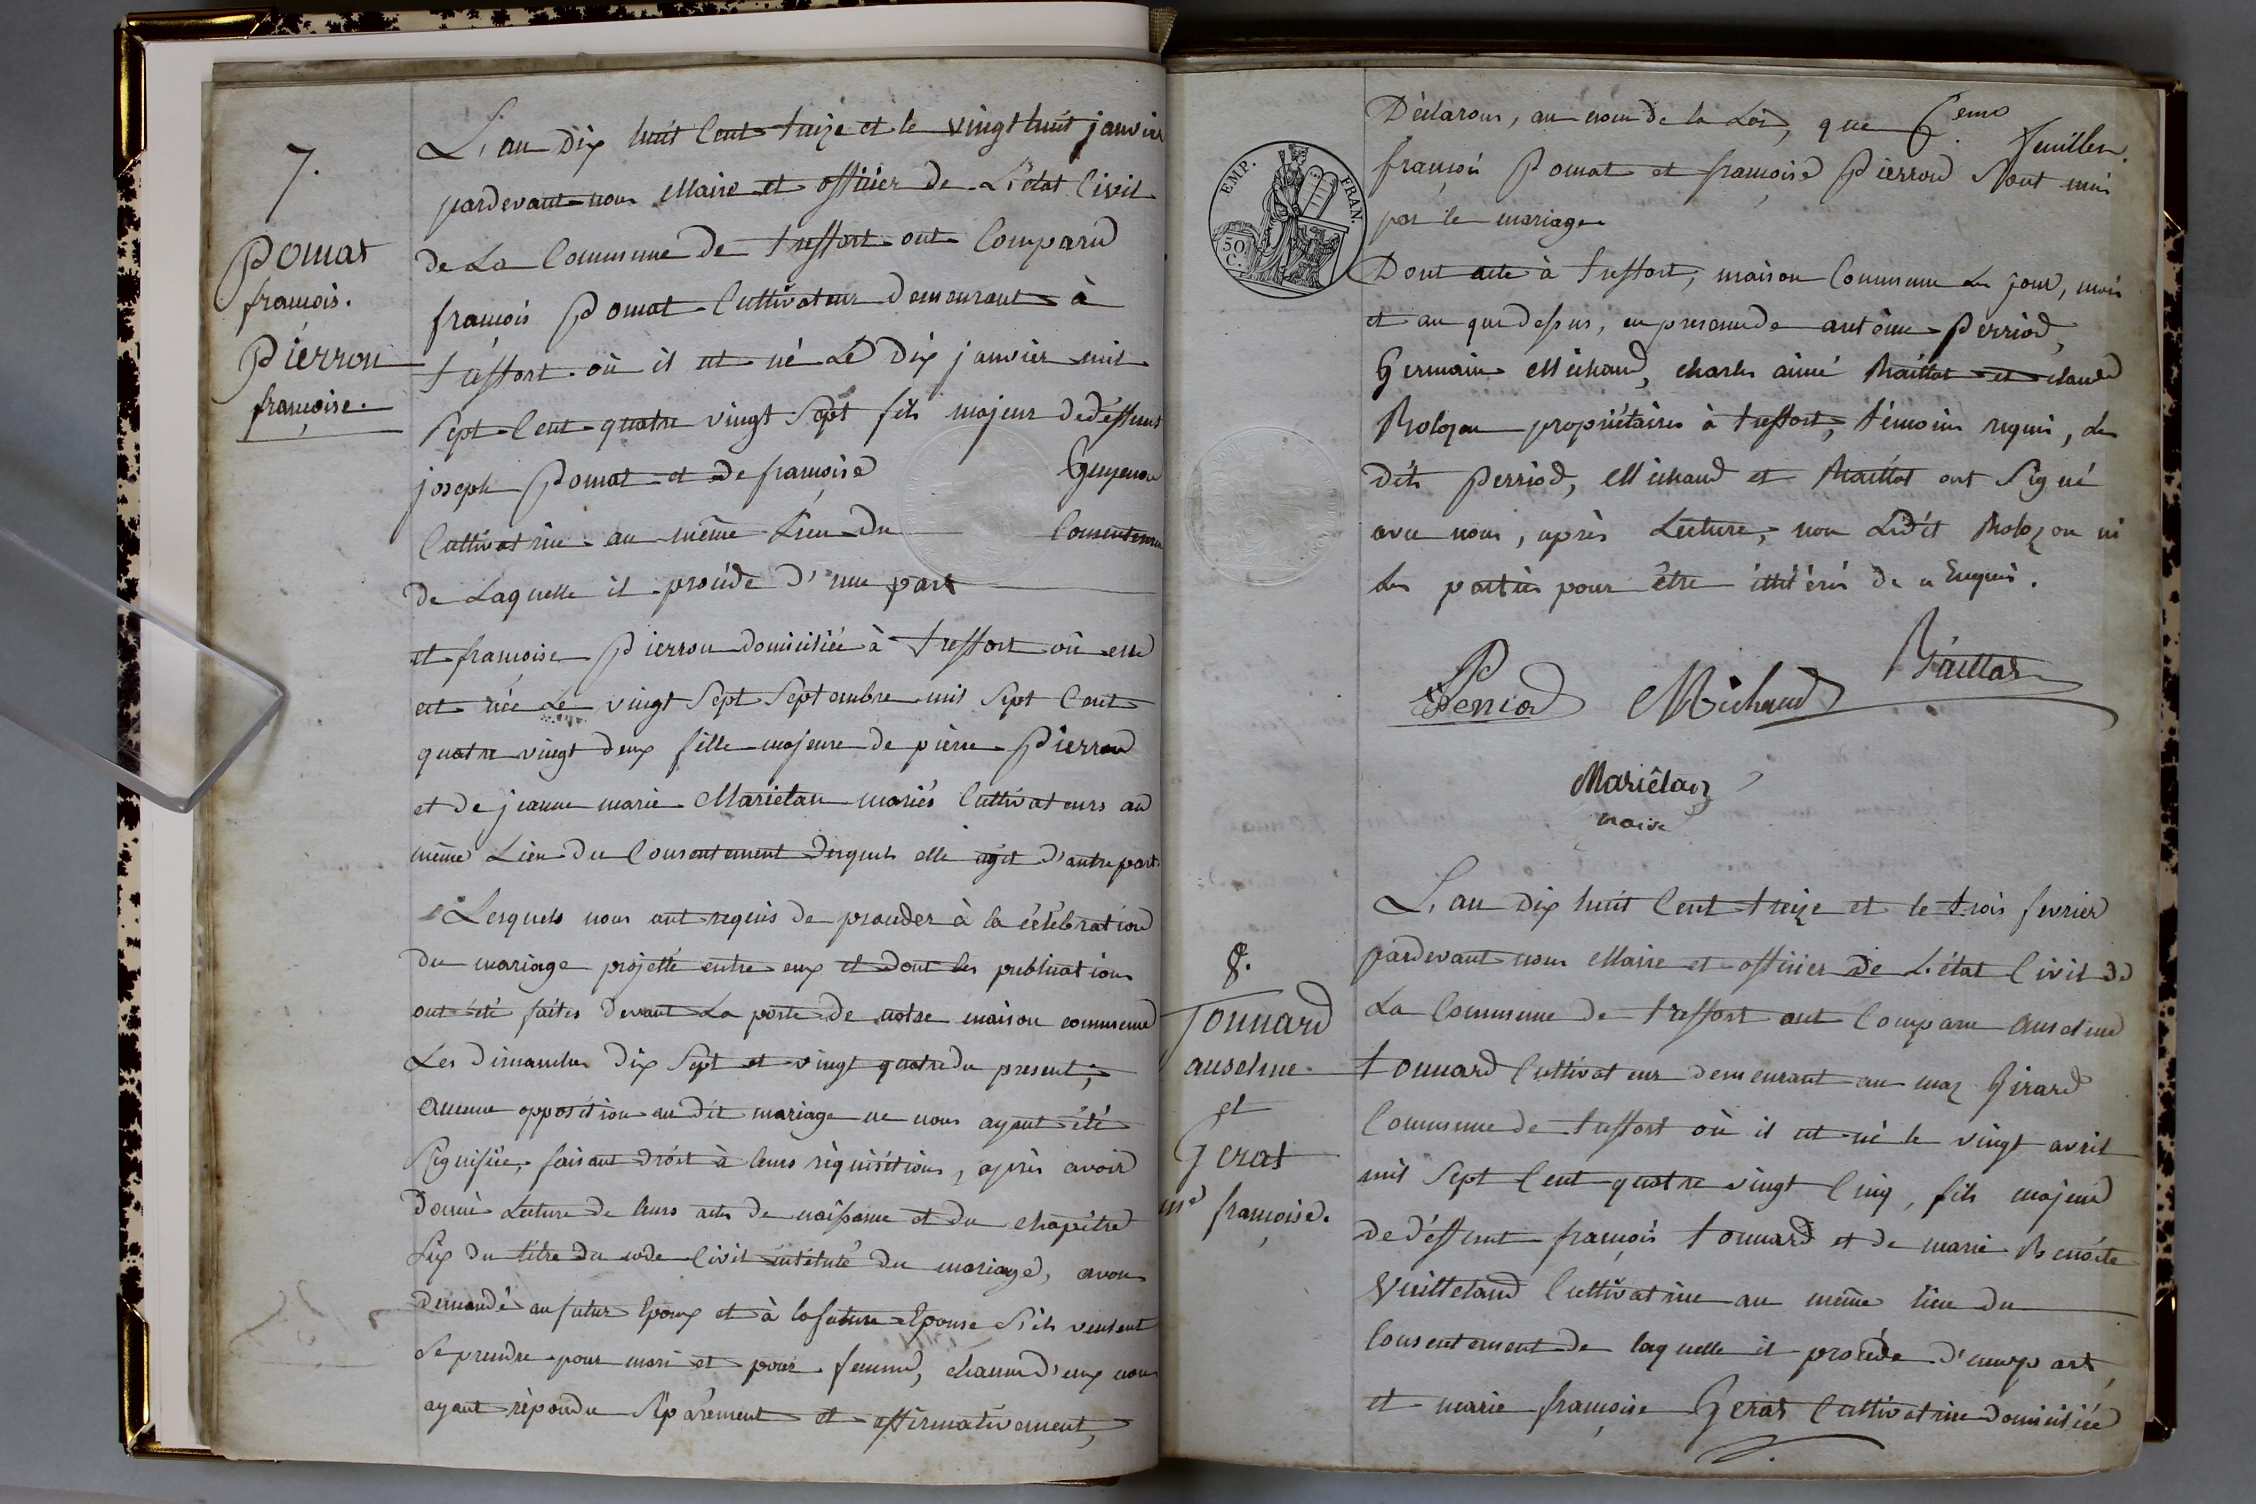 7.
Pomat
françois.
Pierron
françoise.
L'an Dix huit Cent treize et le vingt huit janvier
pardevant nous Maire et officier de L'état Civil
de La Commune de treffort ont Comparu
françois Pomat Cultivateur Demeurant à
treffort où il est né Le Dix janvier mil
Sept Cent quatre vingt Sept fils majeur de déffunt
joseph Pomat et de françoise Guyenon
Cultivatrice au même Lieu Du Consentement
de Laquelle il procéde D'une part
et françoise Pierron domiciliée à treffort où elle
est née Le vingt Sept Septembre mil Sept Cent
quatre vingt deux fille majeure de pierre Pierron
et de jeanne marie Mariélan mariés Cultivateurs au
même Lieu Du Consentement desquels elle agit d'autre part
Lesquels nous ont requis de procéder à la célébration
du mariage projetté entre eux et dont les publications
ont été faites devant La porte de notre maison commune
Les dimanches Dix Sept et vingt quatre du present;
Aucune opposition au dit mariage ne nous ayant été
Signifiée, faisant droit à leurs réquisitions, après avoir
Donné Lecture de leurs actes de naissance et du chapitre
Six du titre du code Civil intitulé du mariage, avons
Demandé au futur Epoux et à la future Epouse S'ils veulent
Se prendre pour mari et pour femme, chacun d'eux nous
ayant répondu Séparément et affirmativement,
6eme
feuillet.
EMP. FRAN.
50 C.
Déclarons, au nom de la Loi, que
françois Pomat et françoise Pierron Sont unis
par le mariage
Dont acte à treffort, maison Commune Les jour, mois
et an que dessus, en presence de antoine Perriod,
Germain Michaud, charles aimé Baillat et claude
Bolozon propriétaires à treffort, témoins requis, les
Dits Perriod, Michaud et Baillat ont Signé
avec nous, après Lecture, non Ledit Bolozon ni
Les parties pour être illitérés de ce Enquis.
Perriod Michaud Baillat
Mariélan
maire
8.
Tonnard
anselme.
et
Gerat
me françoise.
L'an Dix huit Cent treize et le trois fevrier
pardevant nous Maire et officier de L'état Civil de
La Commune de treffort ont Comparu Anselme
tonnard Cultivateur demeurant au maz Girard
Commune de treffort où il est né le vingt avril
mil Sept Cent quatre vingt Cinq, fils majeur
de déffunt françois tonnard et de marie Benoite
Vuilleland Cultivatrice au même lieu du
Consentement de laquelle il procéde d'une part,
et marie françoise Gerat Cultivatrice domiciliée